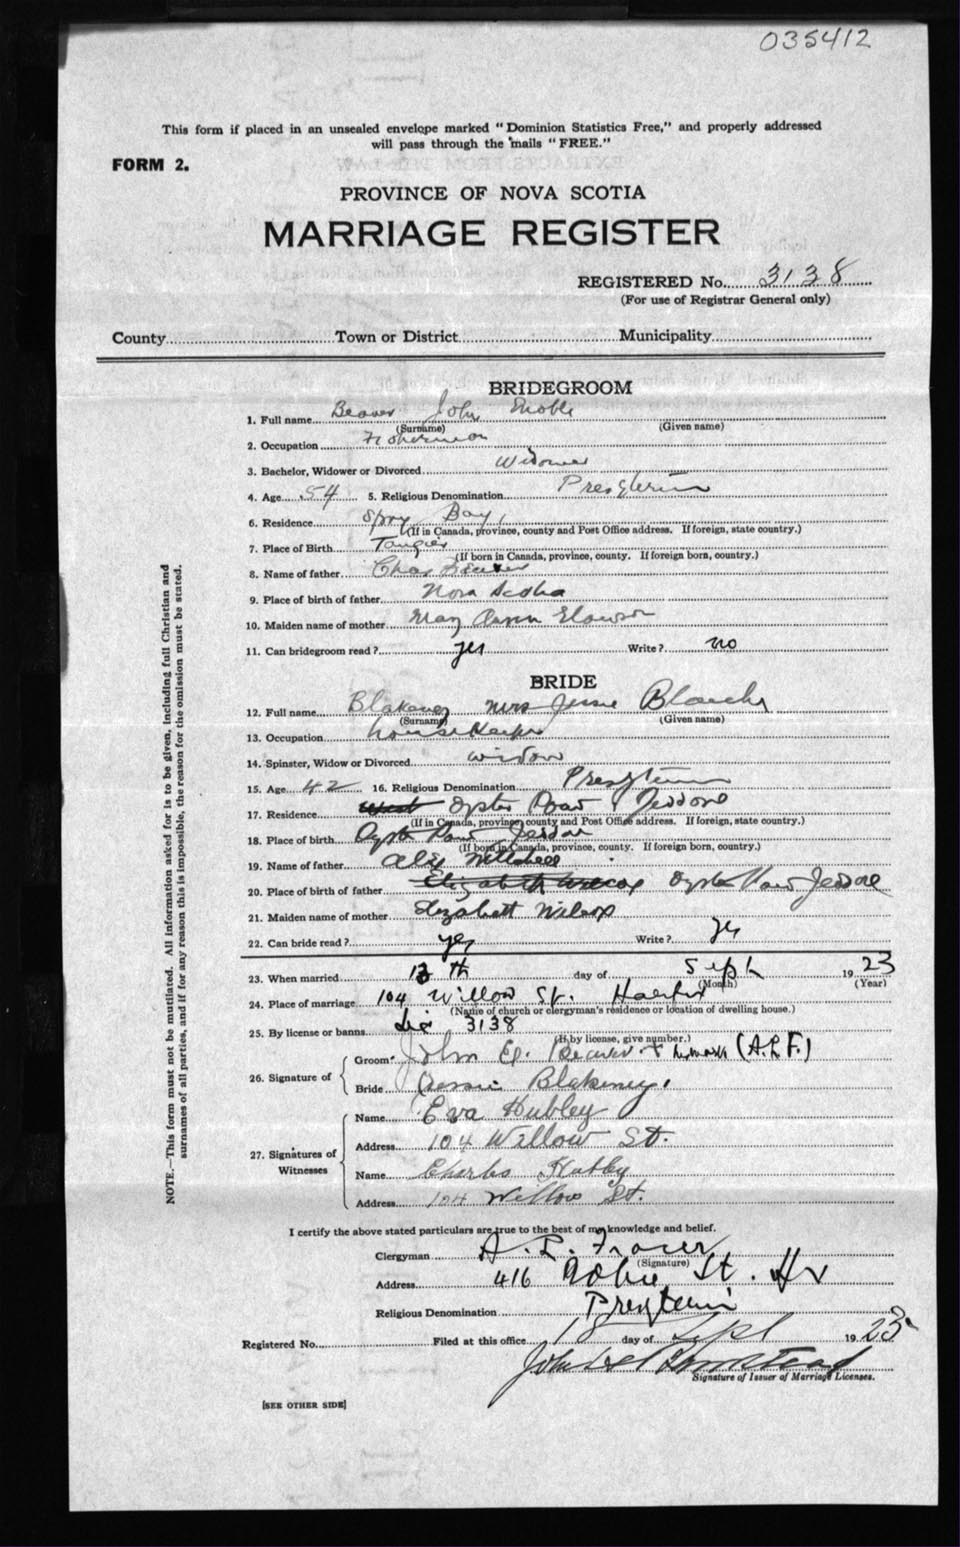 035412
This form if placed in an unsealed envelope marked "Dominion Statistics Free," and properly addressed
will pass through the mails "FREE."
FORM 2.
PROVINCE OF NOVA SCOTIA
MARRIAGE REGISTER
REGISTERED No. 3138
(For use of Registrar General only)
County Town or District Municipality
BRIDEGROOM
1. Full name Beaver John
(Surname) (Given name)
2. Occupation Fisherman
3. Bachelor, Widower or Divorced Widower
4. Age 54 5. Religious Denomination Presyterin
6. Residence Spry Bay
(If in Canada, province, county and Post Office address. If foreign, state country.)
7. Place of Birth Tangier
(If born in Canada, province, county. If foreign born, country.)
8. Name of father Chas Beaver
9. Place of birth of father Nova Scotia
10. Maiden name of mother Mary Ann
11. Can bridegroom read? yes Write? no
BRIDE
12. Full name Blakeney Mrs Jessie
(Surname) (Given name)
13. Occupation housekeeper
14. Spinster, Widow or Divorced widow
15. Age 42 16. Religious Denomination
17. Residence Oyster Pond Jeddore
(If in Canada, province, county and Post Office address. If foreign, state country.)
18. Place of birth Oyster Pond Jeddore
(If born in Canada, province, county. If foreign born, country.)
19. Name of father Alex
20. Place of birth of father Elizabeth Wilcox Oyster Pond Jeddore
21. Maiden name of mother Elizabeth Wilcox
22. Can bride read? yes Write? yes
23. When married th day of Sept 1923
(Month) (Year)
24. Place of marriage 104 Willow St. Halifax
(Name of church or clergyman's residence or location of dwelling house.)
25. By license or banns Lic 3138
(If by license, give number.)
26. Signature of
Groom John Beaver x mark (A.L.F.)
Bride Jessie Blakeney
27. Signatures of Witnesses
Name Eva Hubley
Address 104 Willow St.
Name Charles Hubley
Address 104 Willow St.
I certify the above stated particulars are true to the best of my knowledge and belief.
Clergyman A. L. Fraser
(Signature)
Address 416 Robie St. Hx
Religious Denomination
Registered No. Filed at this office 18 day of Sept 1923
John
Signature of Issuer of Marriage Licenses.
[SEE OTHER SIDE]
NOTE.—This form must not be mutilated. All information asked for is to be given, including full Christian and
surnames of all parties, and if for any reason this is impossible, the reason for the omission must be stated.